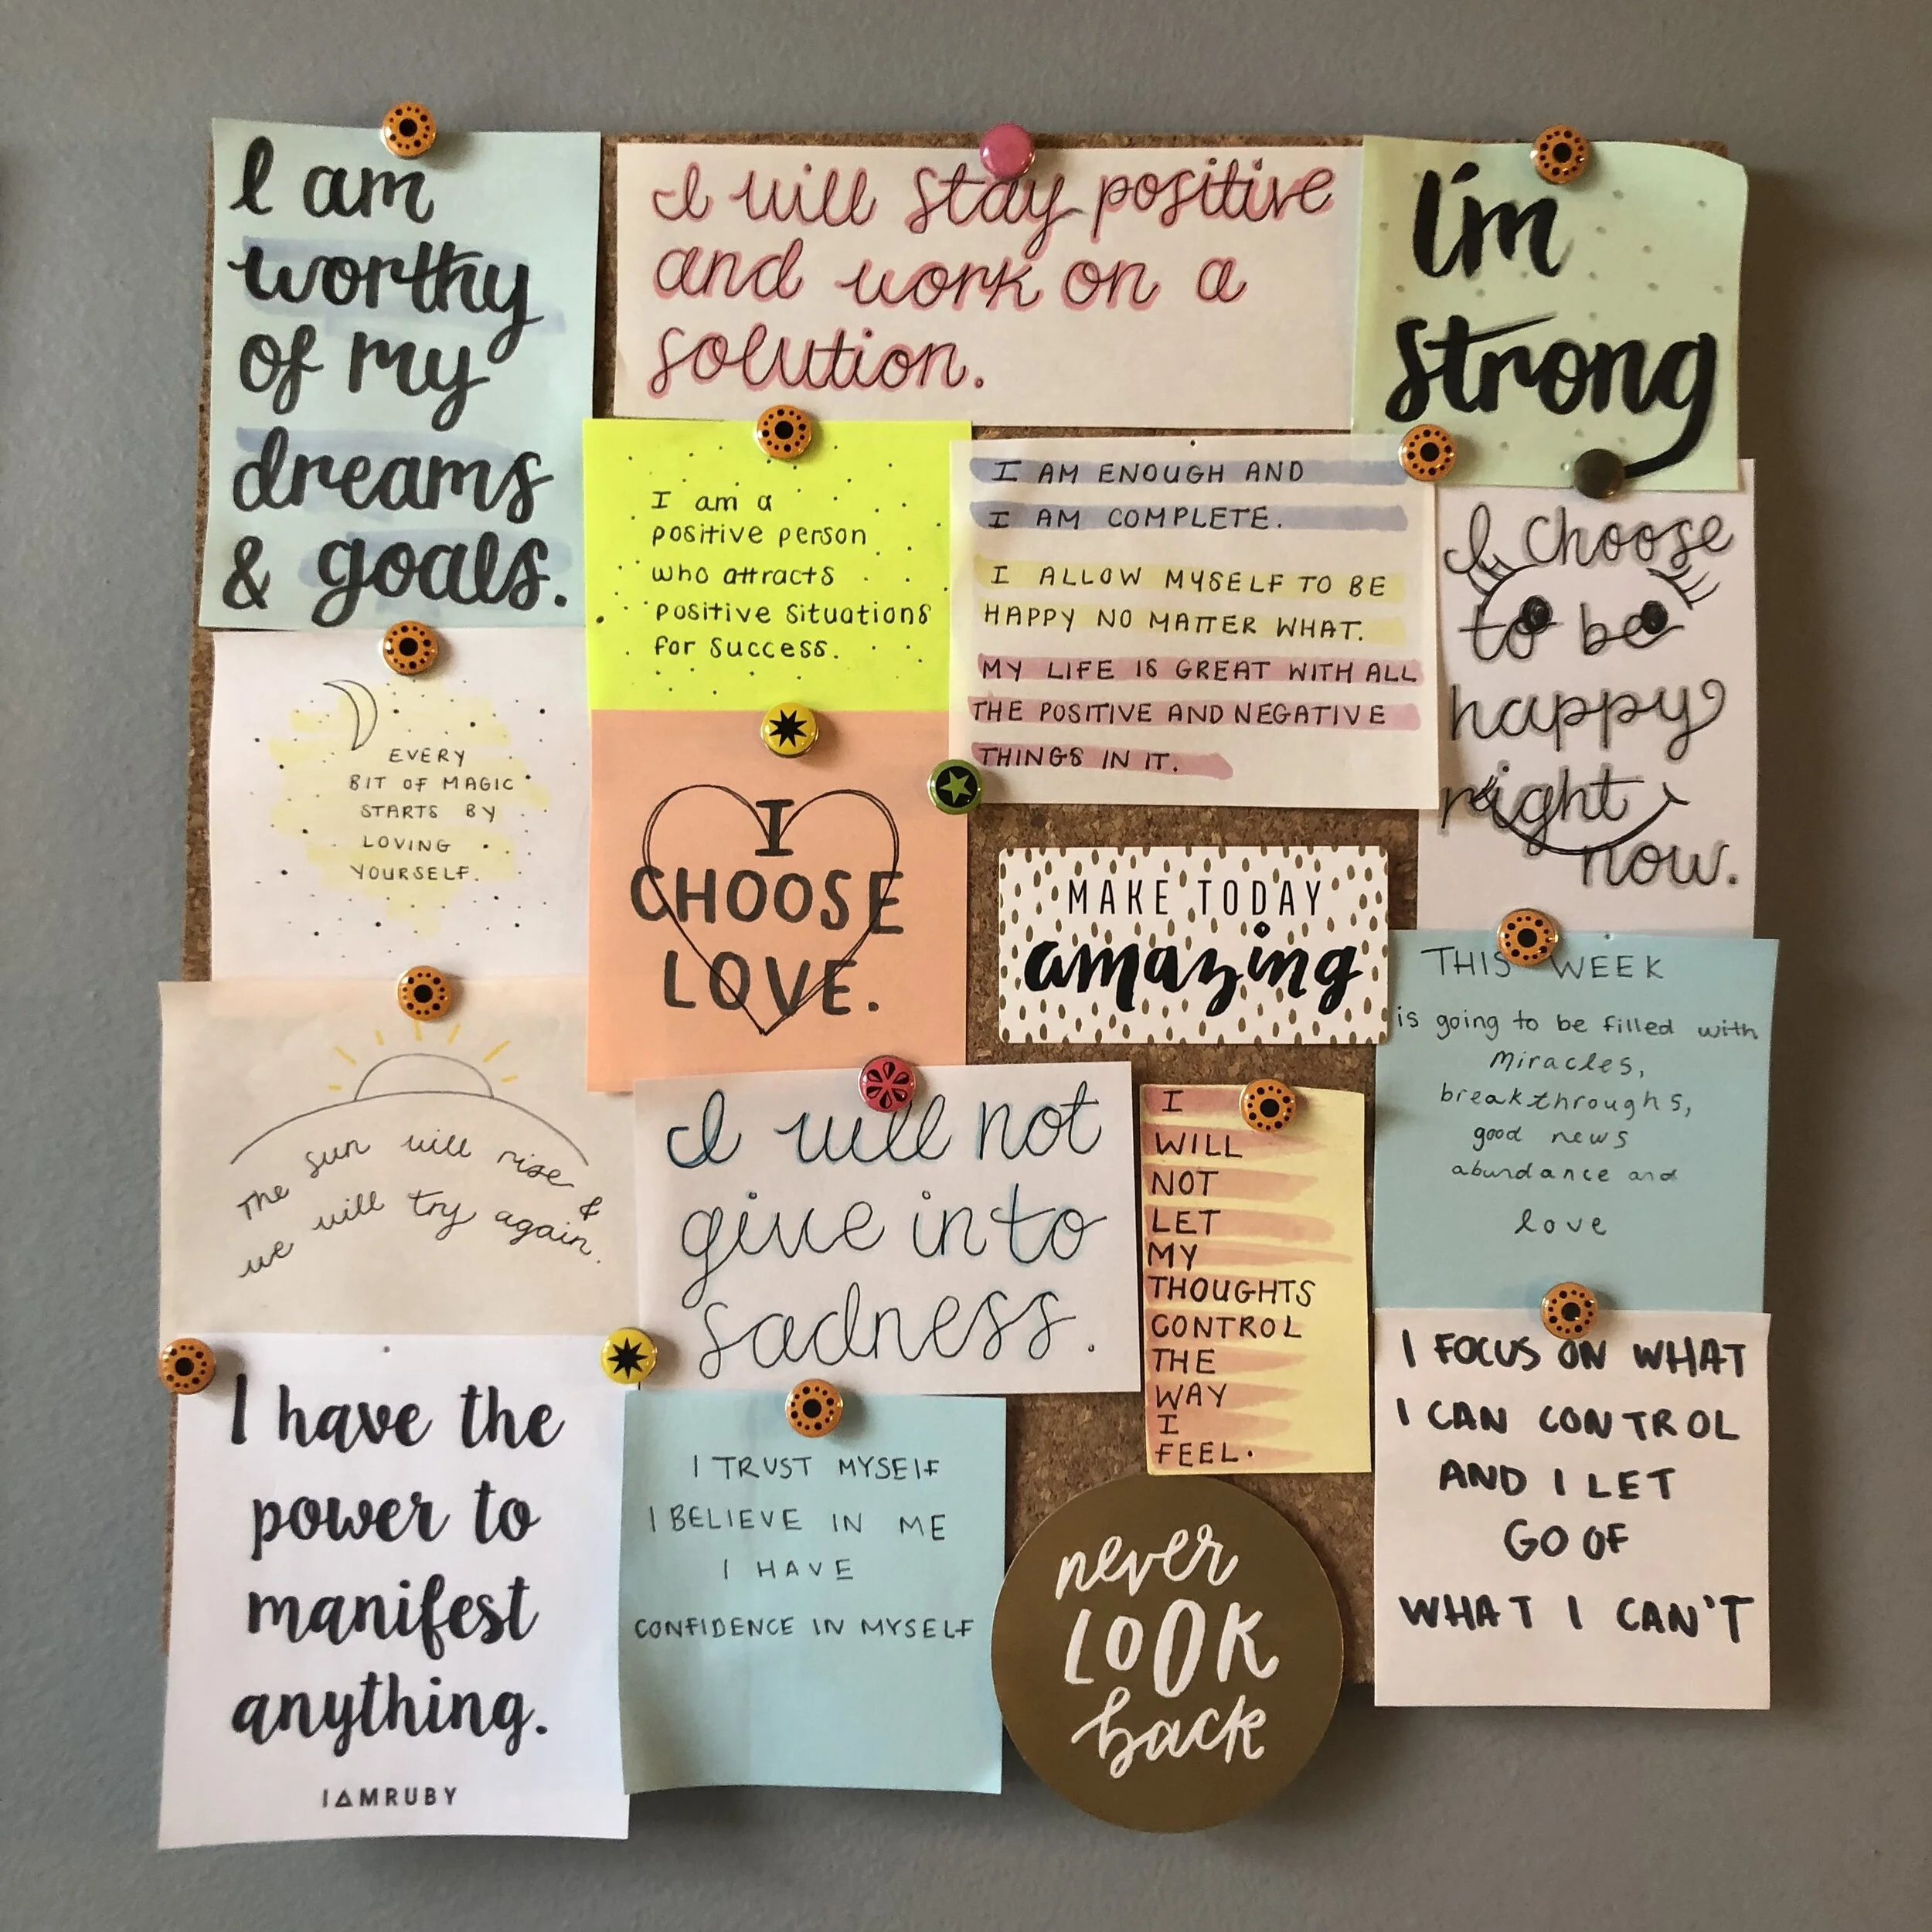 I am
worthy
of my
dreams
& goals.
I will stay positive
and work on a
solution.
I'm
strong
I am a
positive person
who attracts
positive situations
for success.
I AM ENOUGH AND
I AM COMPLETE.
I ALLOW MYSELF TO BE
HAPPY NO MATTER WHAT.
MY LIFE IS GREAT WITH ALL
THE POSITIVE AND NEGATIVE
THINGS IN IT.
I choose
to be
happy
right
now.
EVERY
BIT OF MAGIC
STARTS BY
LOVING
YOURSELF.
I
CHOOSE
LOVE.
MAKE TODAY
amazing
THIS WEEK
is going to be filled with
miracles,
breakthroughs,
good news
abundance and
love
The sun will rise &
we will try again.
I will not
give into
sadness.
I
WILL
NOT
LET
MY
THOUGHTS
CONTROL
THE
WAY
I
FEEL.
I have the
power to
manifest
anything.
IAMRUBY
I TRUST MYSELF
I BELIEVE IN ME
I HAVE
CONFIDENCE IN MYSELF
never
LOOK
back
I FOCUS ON WHAT
I CAN CONTROL
AND I LET
GO OF
WHAT I CAN'T